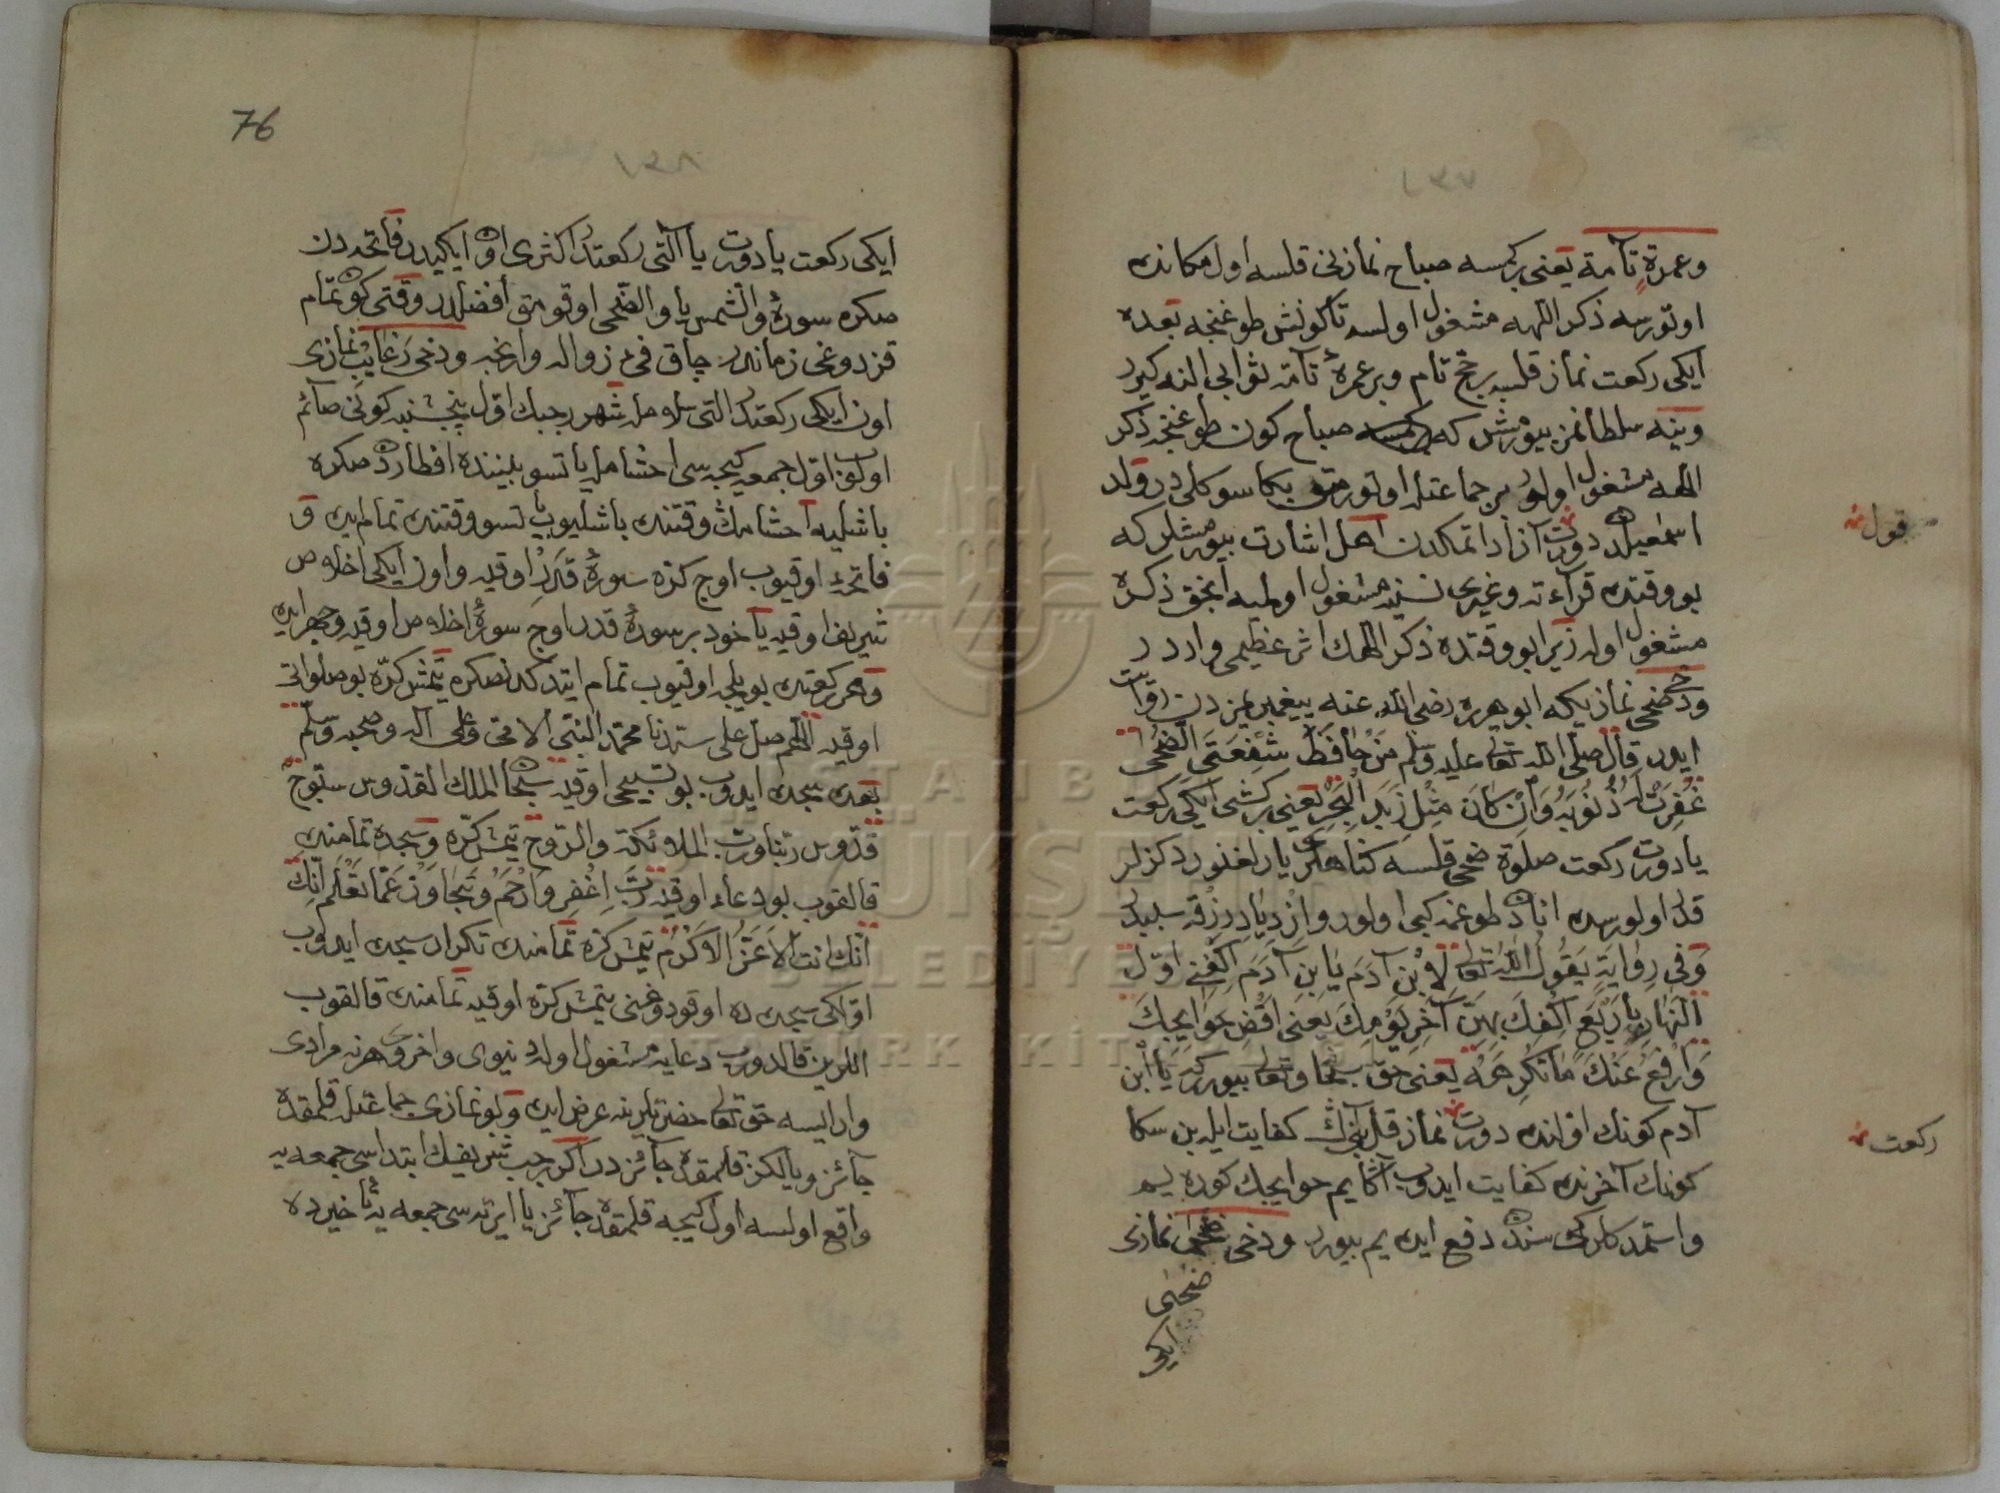 وعمرة تامة يعنى بر كمسه صباح نمازنى قلسه اول مكانده
اوتورسه ذكر اللهه مشغول اولسه تا كونش طوغنجه بعده
ايكى ركعت نماز قلسه بر حج تام وبر عمرۀ تامه ثوابى النه كيرر
وينه سلطانمز بيورمش كه صباح كون طوغنجه ذكر
اللهه مشغول اولور بر جماعتله اوتورمق بكا سوكلى در ولد
اسمعيلدن دورت آزاد اتمكدن اهل اشارت بيورمشلر كه
بو وقتده قراءته وغيرى نسنيه مشغول اولميه انجق ذكره
مشغول اوله زيرا بو وقتده ذكر اللهك اثر عظيمى وارد ر
ودخى ضحى نمازيكه ابو هريره رضى الله عنه پيغمبريمزدن روايت
ايدر قال صلى الله تعالى عليه وسلم من حافظ شفعتى الضحى
غفرت له ذنوبه وان كان مثل زبد البحر يعنى بر كشى ايكى ركعت
يا دورت ركعت صلوة ضحى قلسه كناهلرى يارلغنور دكزلر
قدر اولورسه انادن طوغمه كبى اولور وازدياد رزقه سببدر
وفى رواية يقول الله تعالى لابن آدم يا ابن آدم اكفنى اول
النهار باربع اكفك بهن آخر يومك يعنى اقض حوايجك
وارفع عنك ما تكرهه يعنى حق سبحانه وتعالى بيورر كه يا ابن
آدم كونك اولنده دورت نماز قل بنم كفايت ايله بن سكا
كونك آخرنده كفايت ايدوب آنا يم حوايجك كوره يم
واستمدكلرك سندن دفع ايده يم بيورر ودخى ضحى نمازى
ضحى
ايكى
قول
ركعت
76
ايكى ركعت يا دورت يا آلتى ركعتدر اكثرى اون ايكيدر فاتحه دن
صكره سورۀ والشمس يا والضحى اوقومق افضلدر وقتى كون تمام
قزدوغى زماندر چاق فئ زواله وارنجه ودخى رغايب نمازى
اون ايكى ركعتدر التى سلامله شهر رجبك اول پنجشنبه كونى صائم
اولوب اول جمعه كيجه سى اخشامله ياتسو بيننده افطاردن صكره
باشليه اخشامك وقتنده باشليوب ياتسو وقتنده تمام ايده و
فاتحۀ اوقيوب اوج كزه سورۀ قدر اوقيه واون ايكى اخلاص
شريف اوقيه ياخود بر سورۀ قدر اوج سورۀ اخلاص اوقيه وجهر ايده
وهر ركعتده بويله اوقيوب تمام ايتدكدنصكره يتمش كره بو صلواتى
اوقيه اللهم صل على سيدنا محمد النبى الامى وعلى آله وصحبه وسلم
بعده سجده ايدوب بو تسبيحى اوقيه سبحان الملك القدوس سبوح
قدوس ربنا ورب الملائكة والروح يتمش كره وسجده تمامنده
قالقوب بو دعاء اوقيه رب اغفر وارحم وتجاوز عما تعلم انك
انك انت الاعز الاكرم يتمش كره تمامنده تكرار سجده ايدوب
اولكى سجده ده اوقودوغنى يتمش كره اوقيه تمامنده قالقوب
اللرين قالدروب دعايه مشغول اوله دنيوى واخروى هر نه مرادى
وار ايسه حق تعالى حضرتلرينه عرض ايده وبو نمازى جماعتله قلمقده
جائز ويالكز قلمقده جائزدر اكر رجب شريفك ابتداسى جمعه يه
واقع اولسه اول كيجه قلمقده جائز يا ايرته سى جمعه يه تاخيرده